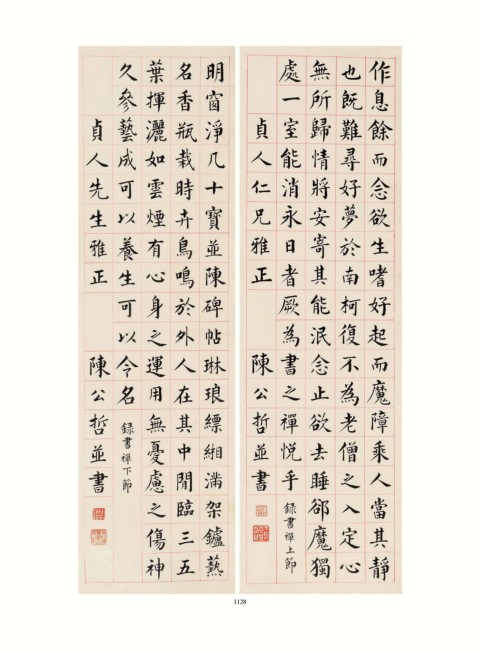 作息餘而念欲生嗜好起而魔障乘人當其靜
也既難尋好夢於南柯復不為老僧之入定心
無所歸情將安寄其能泯念止欲去睡郤魔獨
處一室能消永日者厥為書之禪悅乎 錄書禪上節
貞人仁兄雅正 陳公哲並書
明窗淨几十寶並陳碑帖琳琅縹緗滿架鑪爇
名香瓶栽時卉鳥鳴於外人在其中閒臨三五
葉揮灑如雲煙有心身之運用無憂慮之傷神
久參藝成可以養生可以令名 錄書禪下節
貞人先生雅正 陳公哲並書
1128